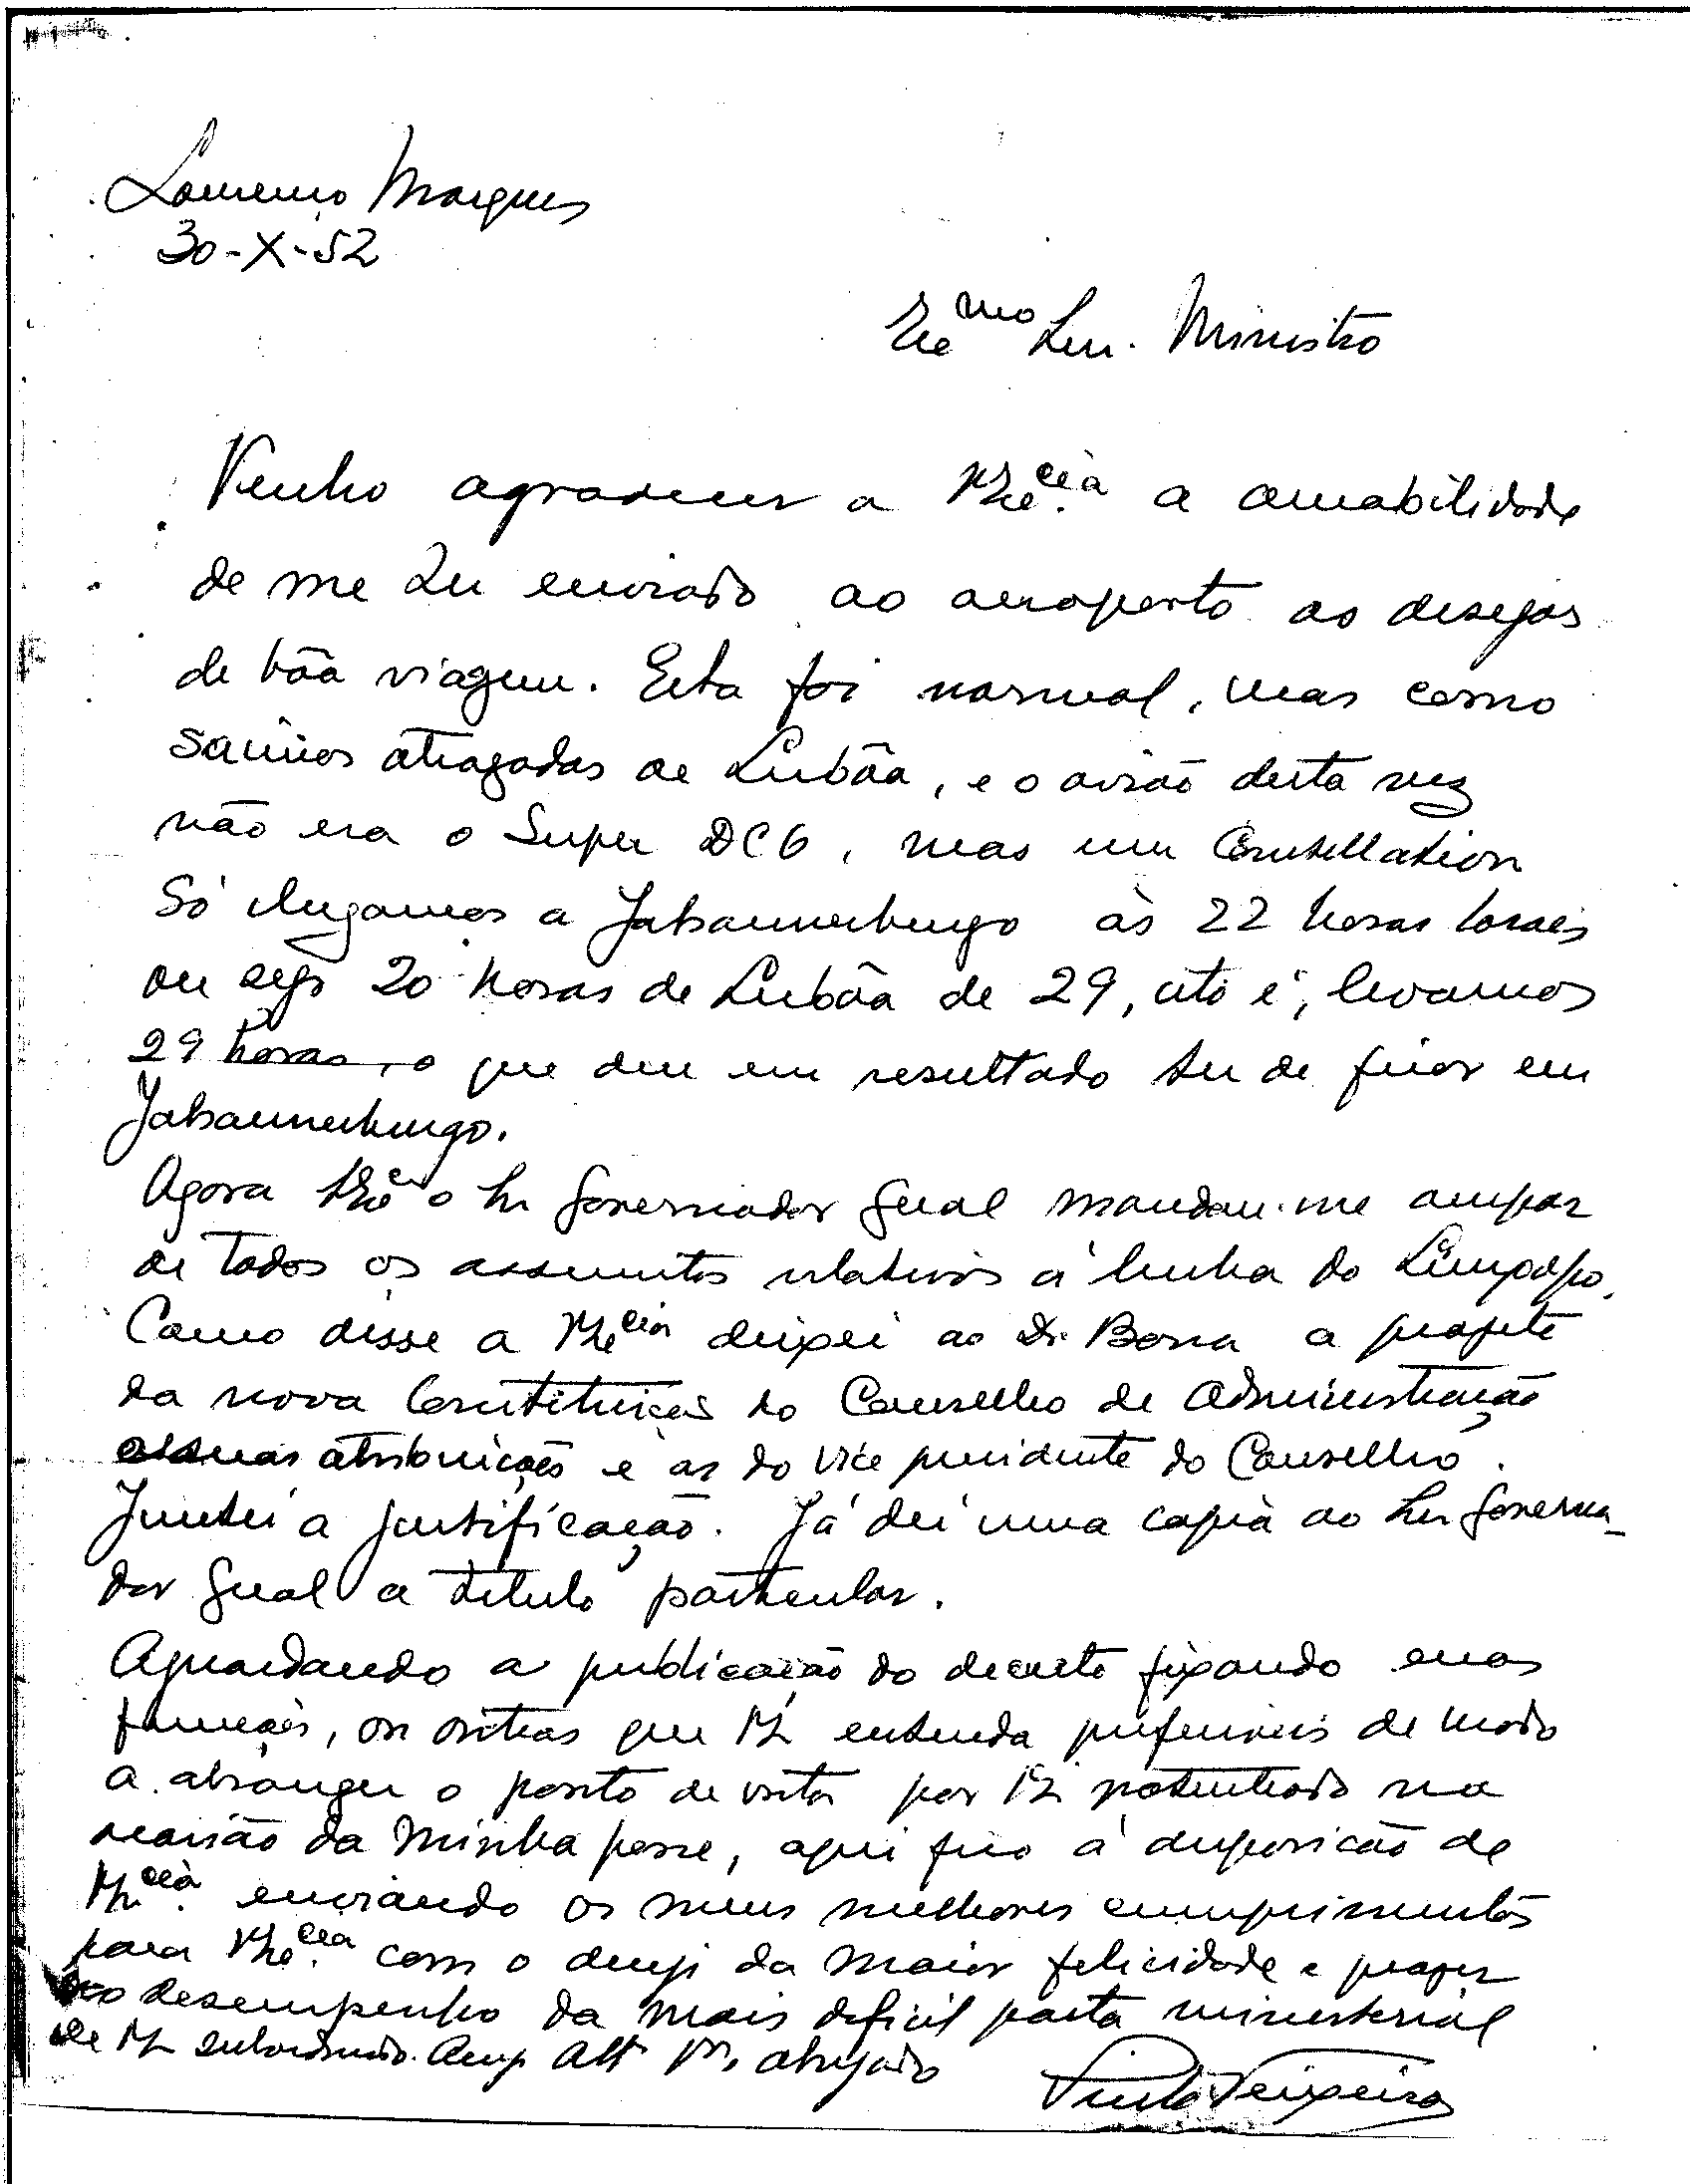 Lourenço Marques
30-X-52
Exᵐᵒ Snr. Ministro
Venho agradecer a VExᶜⁱᵃ a amabilidade
de me ter enviado ao aeroporto os desejos
de bôa viagem. Esta foi normal, mas como
saímos atrazados de Lisbôa, e o avião desta vez
não era o Super DC6, mas um Constellation
Só chegamos a Johannesburgo às 22 horas locaes
ou seja 20 horas de Lisbôa de 29, isto é, levamos
29 horas, o que deu em resultado ter de ficar em
Johannesburgo.
Agora o Sr Governador Geral mandou-me ocupar
de todos os assuntos relativos á linha do Limpopo.
Como disse a VExᶜⁱᵃ deixei ao Dr. a projeto
da nova Constituição do Conselho de Administração
atribuições e as do Vice presidente do Conselho.
Juntei a justificação. Já dei uma copia ao Sr Governa-
dor Geral a titulo particular.
Aguardando a publicação do decreto fixando essas
funções, ou outras que VEx entenda preferiveis de modo
a abranger o ponto de vista por VEx patenteado na
ocasião da minha posse, aqui fico á disposição de
VExᶜⁱᵃ enviando os meus melhores cumprimentos
para VExᶜⁱᵃ com o desejo da maior felicidade e prazer
no desempenho da mais dificil pasta ministerial
De VEx subordinado. Att Mº obrigado
Pinto Teixeira